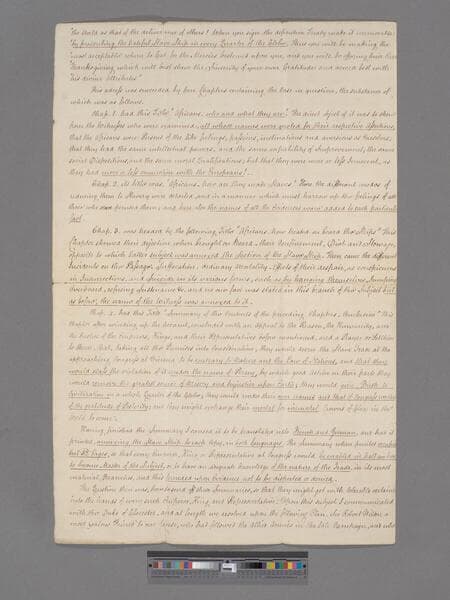 the World as that of the deliverance of others! When you sign the definitive Treaty make it memorable
by presenting the hateful Slave Ship in every Quarter of the Globe. Thus you will be making the
most acceptable return to God for the Mercies bestowed upon you, and you will be offering him that
Thanksgiving which will best shew the sincerity of your own Gratitude and accord best with
his divine attributes."
This address was succeeded by four Chapters containing the case in question, the substance of
which was as follows.
Chap. 1. had this Title "Africans, who and what they are? The direct object of it was to shew
from the Witnesses who were examined, all whose names were quoted for their respective assertions,
that the Africans were Persons of the like feelings, passions, inclinations and aversions as ourselves,
that they had the same intellectual powers, and the same capability of Improvement, the same
social Dispositions, and the same moral Qualifications; but that they were more or less innocent, as
they had more or less communion with the Europeans!
Chap. 2. its title was, "Africans, how are they made Slaves? Here the different modes of
reducing them to Slavery were related, and in a manner which must harrow up the feelings of all
those who perused them; and here also the names of all the Evidences were added to each particular
fact.
Chap. 3. was headed by the following Title "Africans, how treated on board Slave Ships" This
Chapter showed their dejection when brought on board, their confinement, Diet and Stowage,
opposite to which latter subject was annexed the Section of the Slave Ship. Then came the different
Incidents on their Passage, Suffocation, ordinary Mortality, Effects of their despair, as conspicuous
in Insurrections, and Suicide in its various forms, such as by hanging themselves, Jumping
overboard, refusing sustenance &c. and no one fact was stated in this branch of the Subject but
as before, the name of the Witness was annexed to it.
Chap. 4. had this Title "Summary of the Contents of the preceding Chapters, Conclusion" This
chapter after winding up the account, concluded with an appeal to the Reason, the Humanity, and
the Justice of the Emperors, Kings, and their Representatives before mentioned, and a Prayer or Petition
to them that, taking all the Premises into consideration, they would decree the Slave Trade at the
approaching Congress at Vienna to be contrary to Nature and the Law of Nations, and that they
would class the violation of it under the name of Piracy, by which great action on their parts they
would remove the greatest source of Misery and Injustice upon Earth; they would give Birth to
Civilization in a whole Quarter of the Globe; they would make their own names and that of Congress worthy
of the gratitude of Posterity; and they might exchange their mortal for immortal Crowns of Glory in the
World to come."
Having finished the Summary I caused it to be translated into French and German, and had it
printed, annexing the Slave Ship to each copy, in both languages. The Summary when printed
but Pages, so that every Emperor, King or Representative at Congress would be enabled in half an hour
to become Master of the Subject, or to have an adequate knowledge of the nature of the Trade, in its most
material Branches, and this founded upon Evidence not to be disputed or denied.
The Question then was, how to dispose of these Summaries, so that they might get with tolerable certainty
into the hands of every such Emperor, King and Representative. Upon this subject I communicated
with the Duke of Gloucester, and at length we resolved upon the following Plan. Sir Robert Wilson a
most zealous Friend to our cause, who had followed the allied Armies in the late Campaign, and who